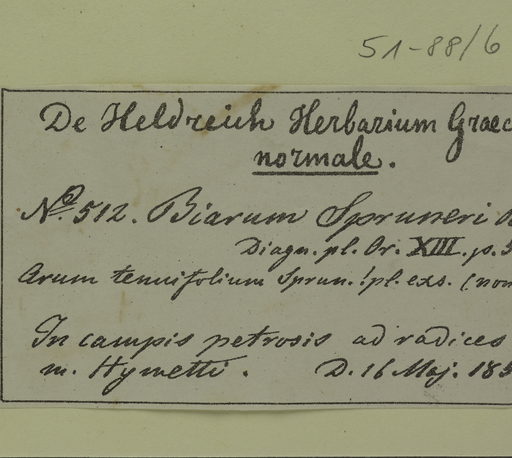 51-88/6
De Heldreich Herbarium Graec
normale.
No. 512. Biarum Spruneri
Diagn. pl. Or. XIII. p.
Arum tenuifolium Sprun.! pl. exs. (non
In campis petrosis ad radices
m. Hymetti. D. 16 Maj. 185